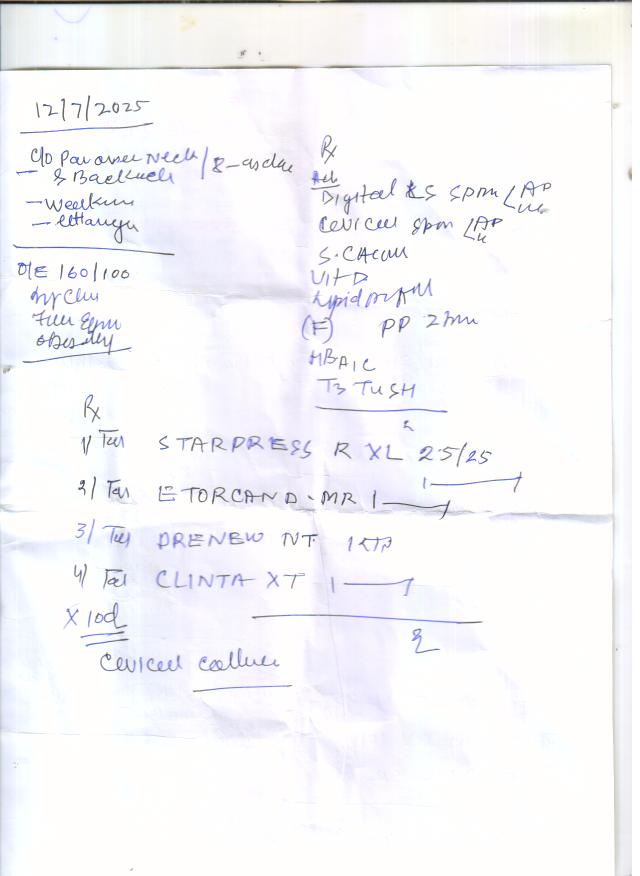 12/7/2025
C/O Pain over Neck / 8-asdae
& Backache
- Weakness
- Lethargy
O/E 160/100
Obesity
Rx
Adv
Digital LS Spine < AP
Cervical Spine < AP
S. Calcium
Vit D
Lipid profile
(F) PP 2 hrs
HBA1C
T3 T4 TSH
Rx
1/ Tab STARPRESS R XL 2.5/25
2/ Tab ETORCAN D-MR 1
3/ Tab PRENEW NT 1
4/ Tab CLINTA XT 1
X 10d
Cervical collar